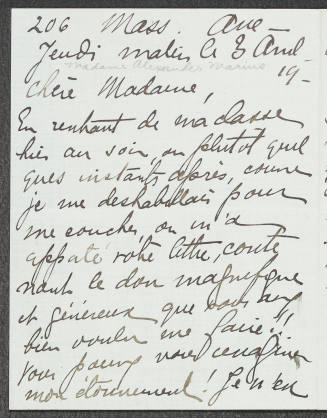 206 Mass. Ave
Jeudi matin le 3 Avril
Madame Alexander Marius
19-
Chère Madame,
En rentrant de ma classe
hier au soir, ou plutôt quel
ques instants après, comme
je me deshabillais pour
me coucher, on m'a
apporté votre lettre, conte
nant le don magnifique
et généreux que vous avez
bien voulu me faire!!
Vous pouvez vous imaginer
mon étonnement! Je n'en